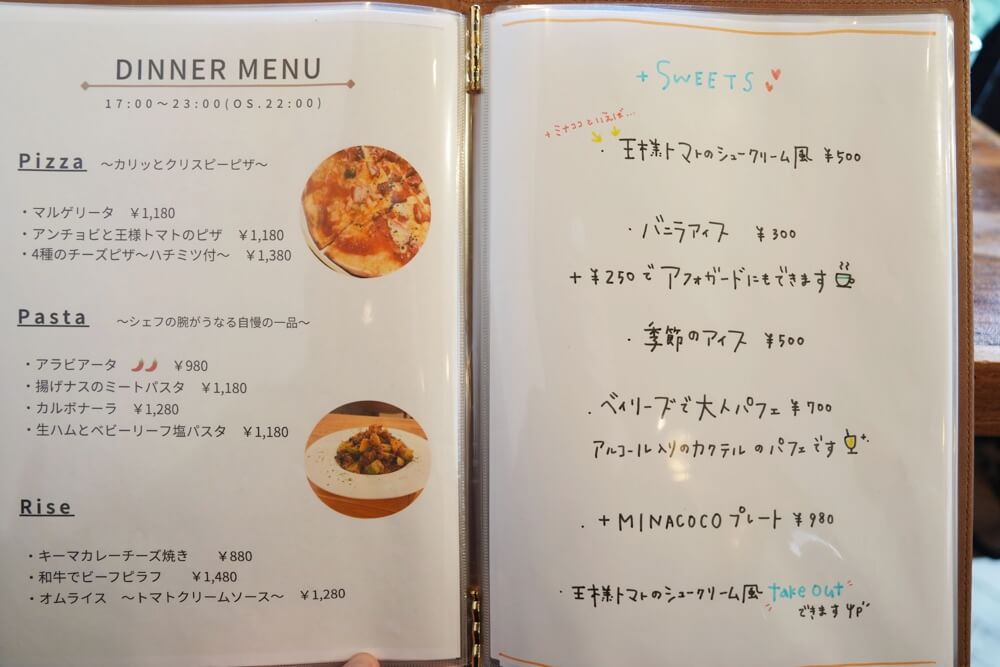 DINNER MENU
17:00～23:00(OS.22:00)
Pizza ～カリッとクリスピーピザ～
・マルゲリータ ￥1,180
・アンチョビと王様トマトのピザ ￥1,180
・4種のチーズピザ～ハチミツ付～ ￥1,380
Pasta ～シェフの腕がうなる自慢の一品～
・アラビアータ ￥980
・揚げナスのミートパスタ ￥1,180
・カルボナーラ ￥1,280
・生ハムとベビーリーフ塩パスタ ￥1,180
Rise
・キーマカレーチーズ焼き ￥880
・和牛でビーフピラフ ￥1,480
・オムライス ～トマトクリームソース～ ￥1,280
+ SWEETS
+ミナココといえば…
・王様トマトのシュークリーム風 ¥500
・バニラアイス ¥300
+ ¥250で アフォガードにもできます
・季節のアイス ¥500
・ベイリーズで大人パフェ ¥700
アルコール入りのカクテルのパフェです
・+ MINACOCO プレート ¥980
・王様トマトのシュークリーム風 take out
できます